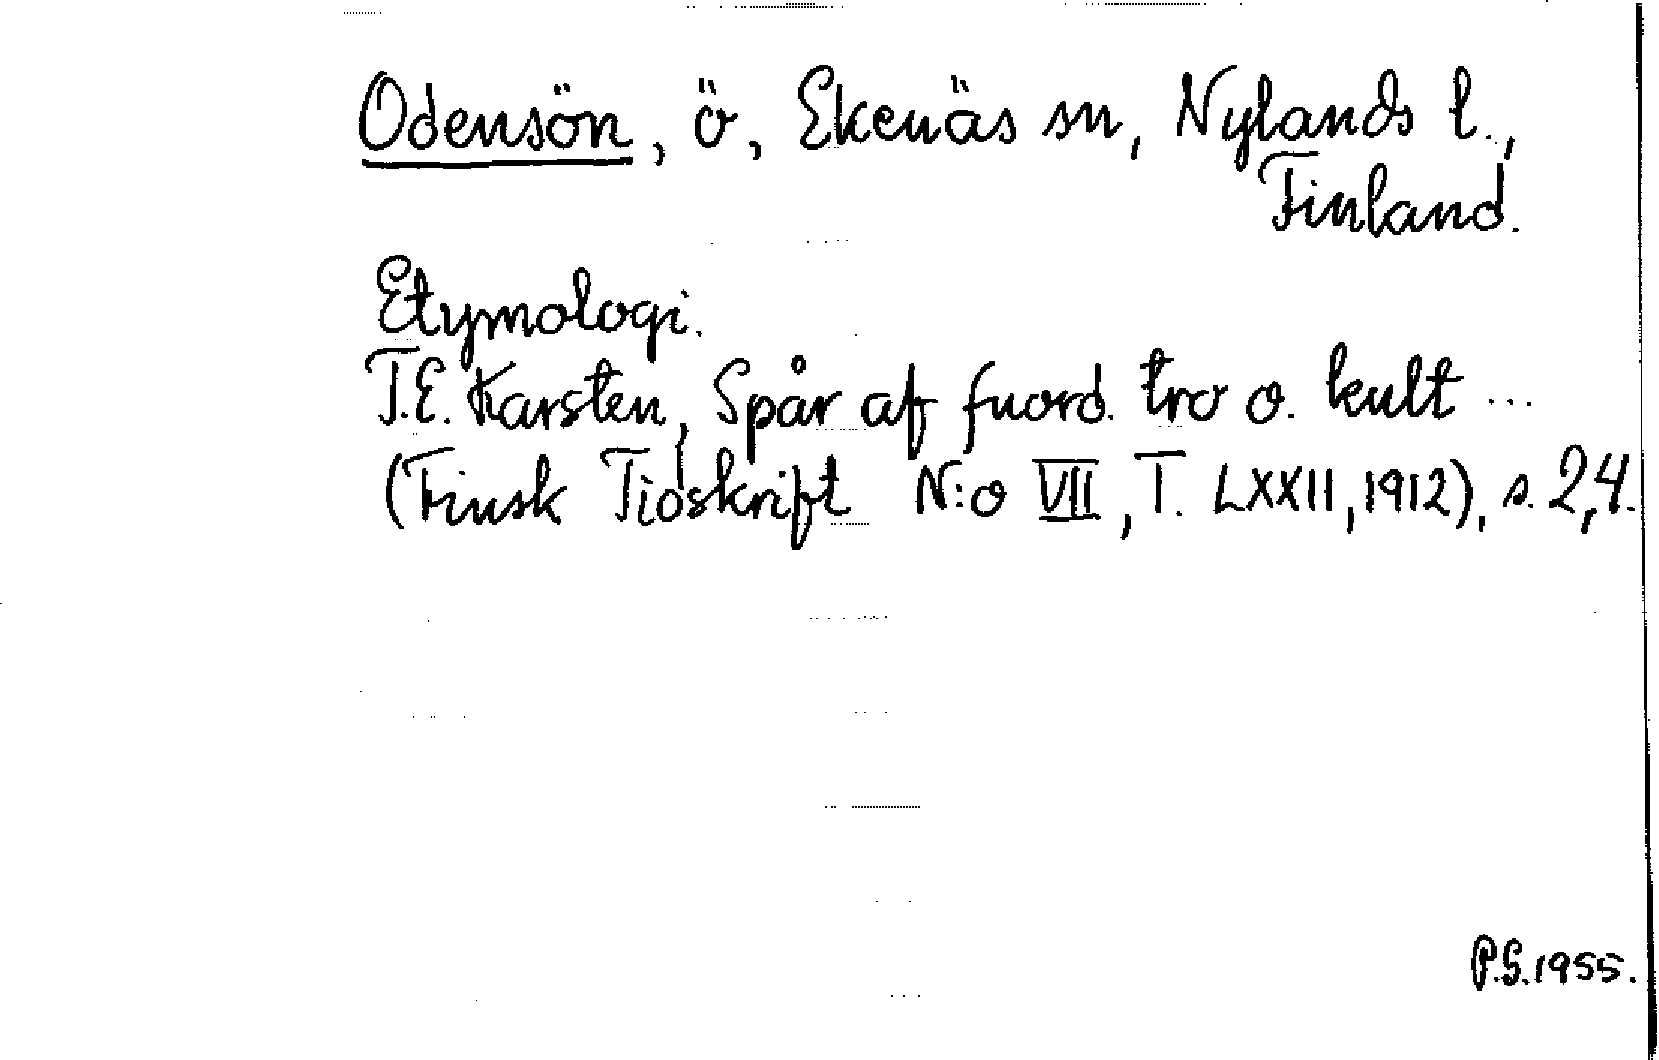 Odensön, ö, Ekenäs sn, Nylands l.,
Finland.
Etymologi.
T.E. Karsten, Spår af fnord. tro o. kult ...
(Finsk Tidskrift N:o VII, T. LXXII, 1912), s. 2,4.
P.S. 1955.